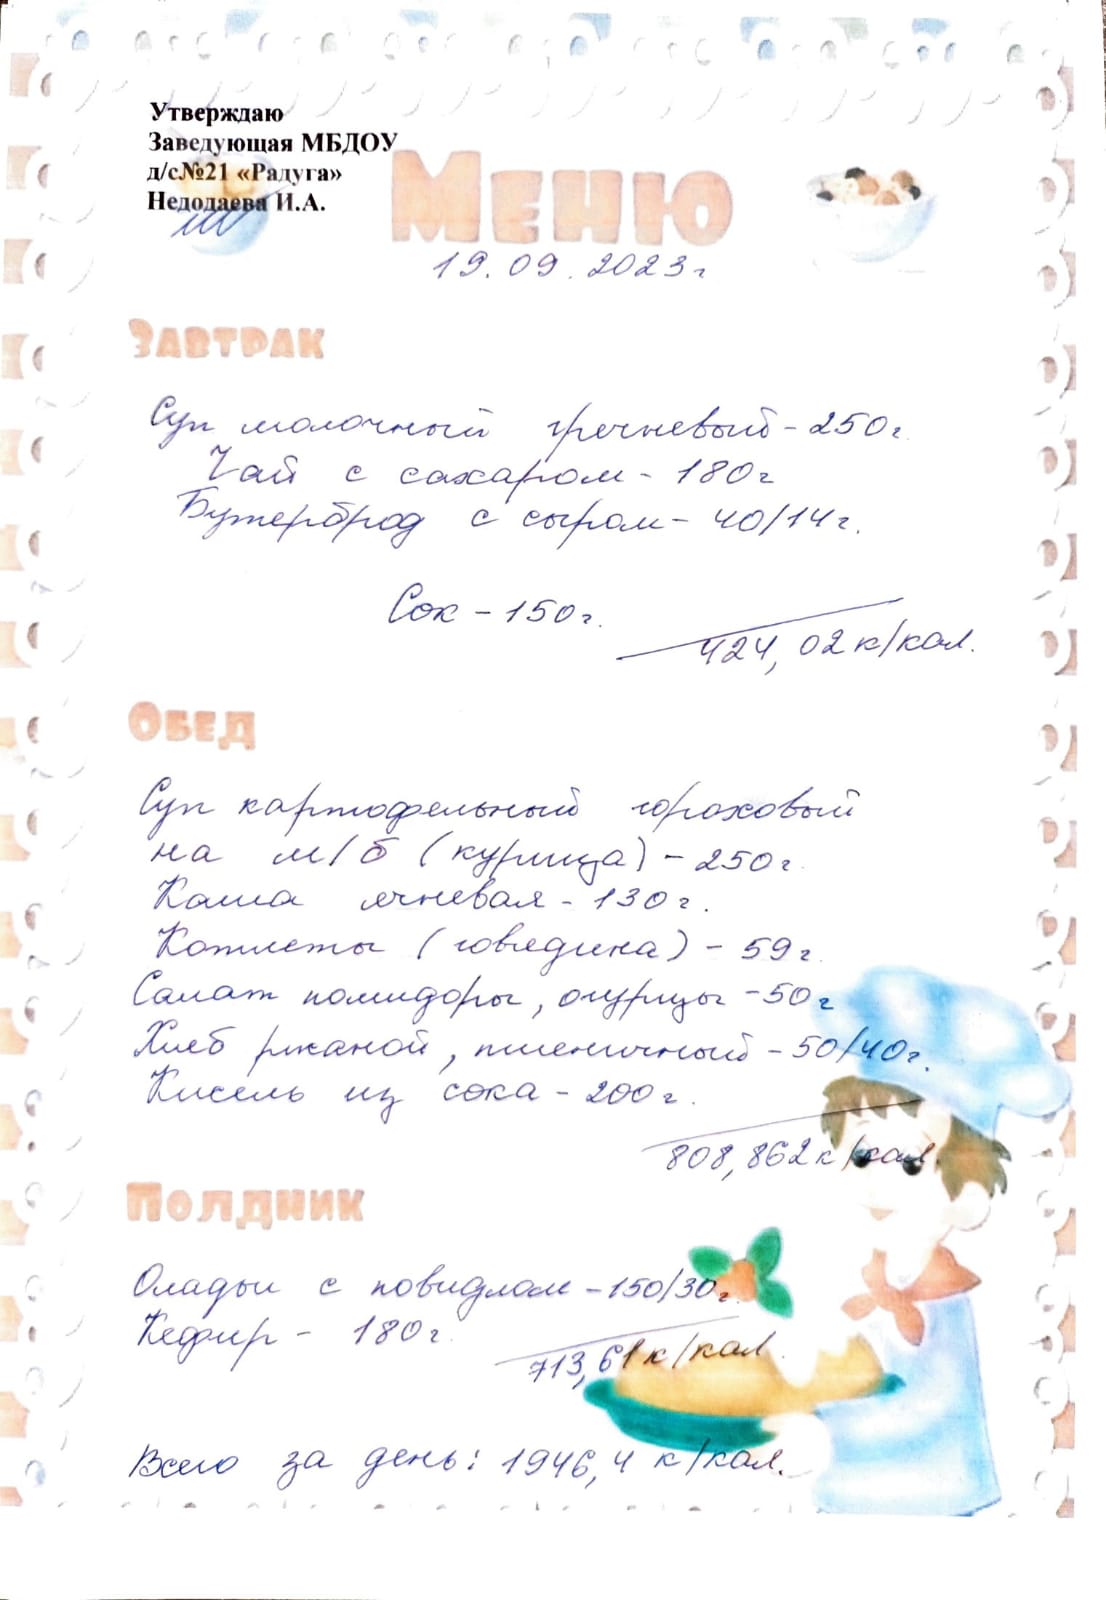 Утверждаю
Заведующая МБДОУ
д/с№21 «Радуга»
Недодаева И.А.
Меню
19.09.2023г
Завтрак
Суп молочный гречневый - 250г.
Чай с сахаром - 180г
Бутерброд с сыром - 40/14г.
Сок - 150г.
424,02 к/кал.
Обед
Суп картофельный гороховый
на м/б (курица) - 250г.
Каша ячневая - 130г.
Котлеты (говядина) - 59г.
Салат помидоры, огурцы - 50г
Хлеб ржаной, пшеничный - 50/40г.
Кисель из сока - 200г.
808,862 к/кал.
Полдник
Оладьи с повидлом - 150/30г.
Кефир - 180г.
713,61 к/кал.
Всего за день: 1946,4 к/кал.